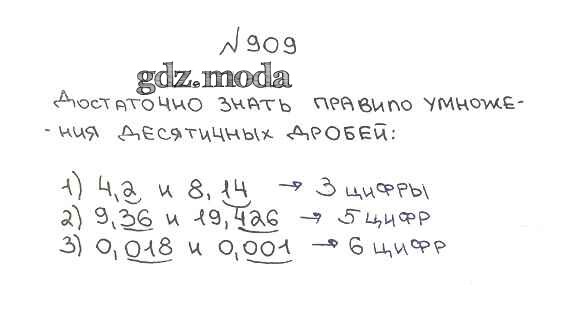 №909
gdz.moda
Достаточно знать правило умноже-
-ния десятичных дробей:
1) 4,2 и 8,14 → 3 цифры
2) 9,36 и 19,426 → 5 цифр
3) 0,018 и 0,001 → 6 цифр